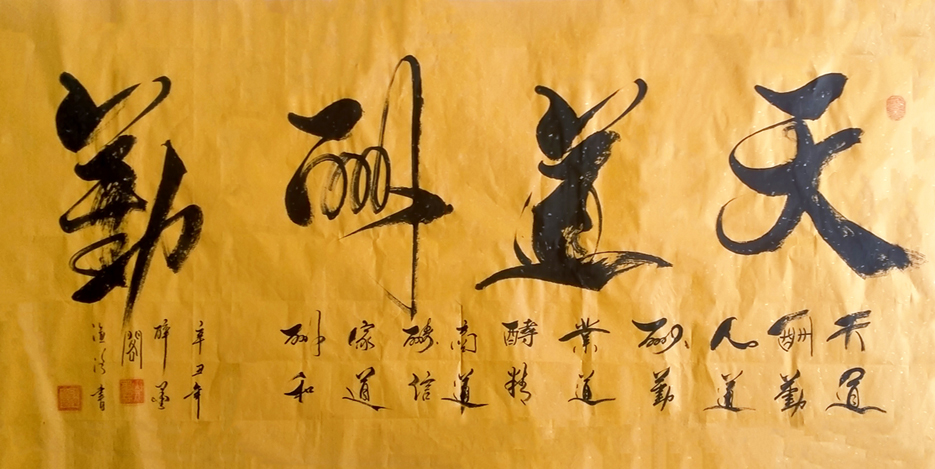 天道酬勤
天道
酬勤
人道
酬勤
業道
酬精
商道
酬信
家道
酬和
辛丑年
醉墨
閣
書